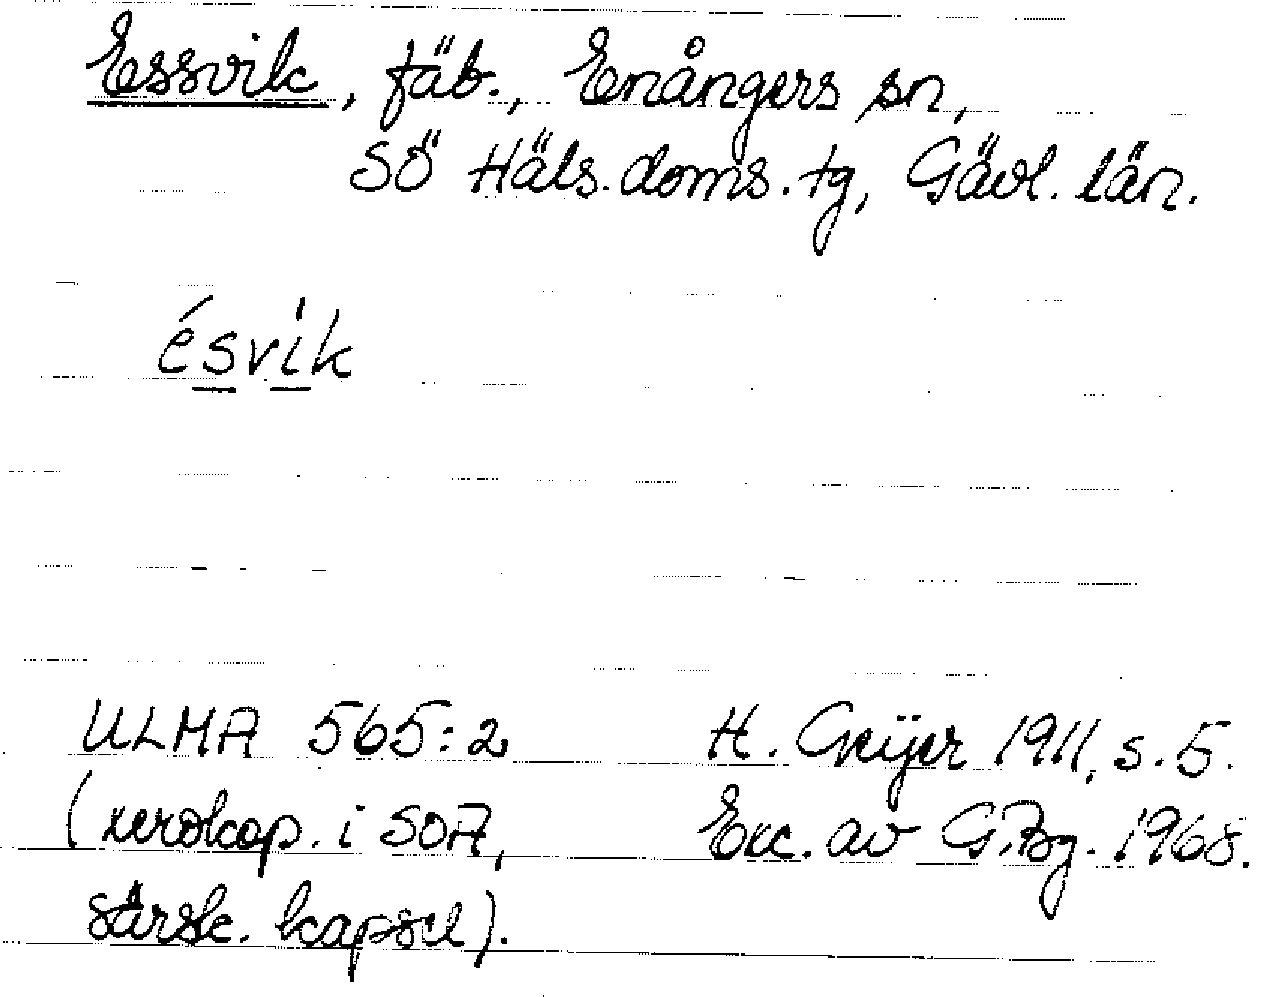 Essvik, fäb., Enångers sn,
SÖ Häls. doms. tg, Gävl. län.
ésvik
ULMA 565:2
(xerokop. i SOA,
särsk. kapsel).
H. Geijer 1911, s. 5.
Exc. av G.Bg. 1968.